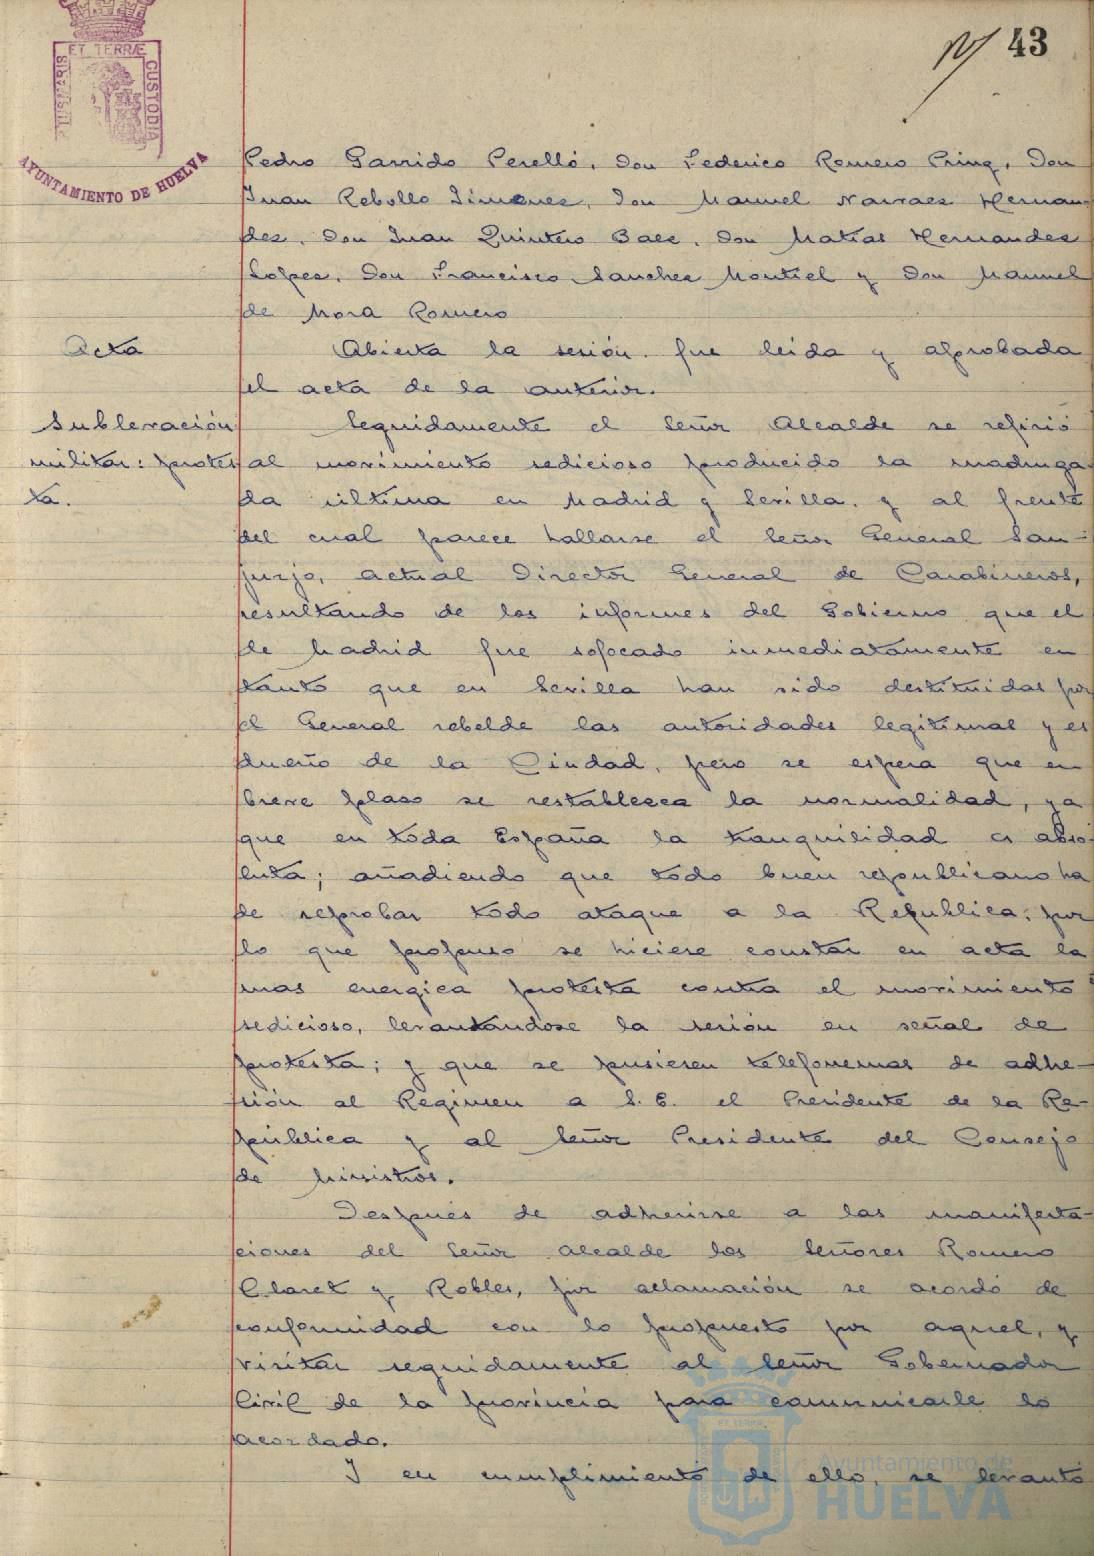 43
ET TERRÆ
PORTUS MARIS
CUSTODIA
AYUNTAMIENTO DE HUELVA
Pedro Garrido Perelló, Don Federico Romero Pring, Don
Juan Rebollo Jimenez, Don Manuel Narvaez Hernan-
dez, Don Juan Quintero Baez, Don Matias Hernandez
Lopez, Don Francisco Sanchez Montiel y Don Manuel
de Mora Romero
Acta
Abierta la sesión, fue leida y aprobada
el acta de la anterior.
Sublevación
militar: protes
ta.
Seguidamente el Señor Alcalde se refirió
al movimiento sedicioso producido la madruga-
da última en Madrid y Sevilla, y al frente
del cual parece hallarse el Señor General San-
jurjo, actual Director General de Carabineros,
resultando de los informes del Gobierno que el
de Madrid fue sofocado inmediatamente en
tanto que en Sevilla han sido destituidas por
el General rebelde las autoridades legitimas y es
dueño de la Ciudad, pero se espera que en
breve plazo se restablezca la normalidad, ya
que en toda España la tranquilidad es abso-
luta; añadiendo que todo buen republicano ha
de reprobar todo ataque a la Republica, por
lo que propuso se hiciese constar en acta la
mas energica protesta contra el movimiento
sedicioso, levantandose la sesión en señal de
protesta; y que se pusiesen telefonemas de adhe-
sión al Regimen a S. E. el Presidente de la Re-
pública y al Señor Presidente del Consejo
de Ministros.
Después de adherirse a las manifesta-
ciones del Señor Alcalde los Señores Romero
Claret y Robles, por aclamación se acordó de
conformidad con lo propuesto por aquel, y
visitar seguidamente al Señor Gobernador
Civil de la provincia para comunicarle lo
acordado.
Y en cumplimiento de ello, se levantó
Ayuntamiento de
HUELVA